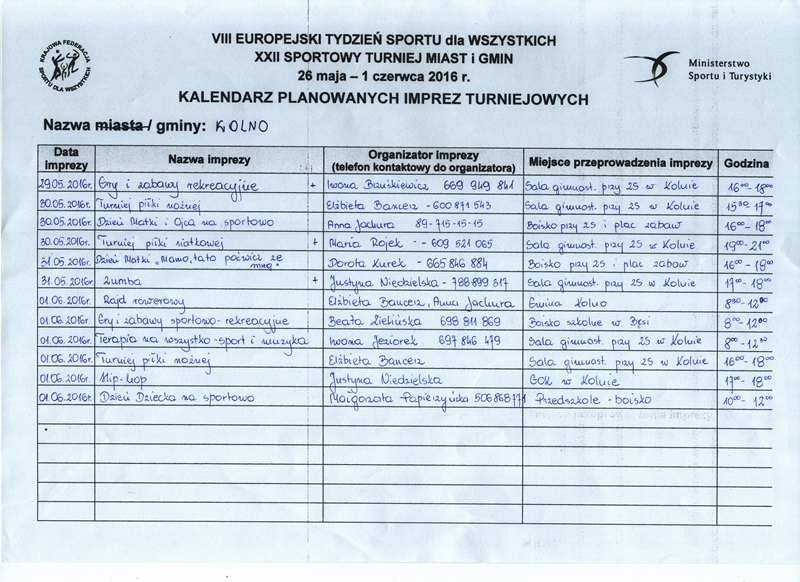 VIII EUROPEJSKI TYDZIEŃ SPORTU dla WSZYSTKICH
XXII SPORTOWY TURNIEJ MIAST i GMIN
26 maja – 1 czerwca 2016 r.
KALENDARZ PLANOWANYCH IMPREZ TURNIEJOWYCH
KRAJOWA FEDERACJA SPORTU DLA WSZYSTKICH
Ministerstwo
Sportu i Turystyki
Nazwa miasta / gminy: KOLNO
Data imprezy Nazwa imprezy Organizator imprezy (telefon kontaktowy do organizatora) Miejsce przeprowadzenia imprezy Godzina
29.05.2016r. Gry i zabawy rekreacyjne + Iwona 669 949 841 Sala gimnast. przy ZS w Kolnie 16⁰⁰ - 18⁰⁰
30.05.2016r. Turniej piłki nożnej Elżbieta Bancerz - 600 871 543 Sala gimnast. przy ZS w Kolnie 15³⁰ - 17⁰⁰
30.05.2016r. Dzień Matki i Ojca na sportowo Anna Jachura 89-715-15-15 Boisko przy ZS i plac zabaw 16⁰⁰ - 18⁰⁰
30.05.2016r. Turniej piłki siatkowej + Maria Rojek - 609 521 065 Sala gimnast. przy ZS w Kolnie 19⁰⁰ - 21⁰⁰
31.05.2016r. Dzień Matki „Mamo, tato poćwicz ze mną" Dorota Kurek - 665 846 884 Boisko przy ZS i plac zabaw 16⁰⁰ - 18⁰⁰
31.05.2016r. Zumba + Justyna Niedzielska - 788 899 317 Sala gimnast. przy ZS w Kolnie 17⁰⁰ - 18⁰⁰
01.06.2016r. Rajd rowerowy Elżbieta Bancerz, Anna Jachura Gmina Kolno 8³⁰ - 12³⁰
01.06.2016r. Gry i zabawy sportowo-rekreacyjne Beata Zielińska 698 811 869 Boisko szkolne w Bęsi 8⁰⁰ - 12³⁰
01.06.2016r. Terapia na wszystko - sport i muzyka Iwona Jeziorek 697 846 479 Sala gimnast. przy ZS w Kolnie 8⁰⁰ - 12³⁰
01.06.2016r. Turniej piłki nożnej Elżbieta Bancerz Sala gimnast. przy ZS w Kolnie 16⁰⁰ - 18⁰⁰
01.06.2016r. Hip-hop Justyna Niedzielska GOK w Kolnie 17⁰⁰ - 18⁰⁰
01.06.2016r. Dzień Dziecka na sportowo Małgorzata Papierzyńska 506 868 771 Przedszkole - boisko 10⁰⁰ - 12⁰⁰